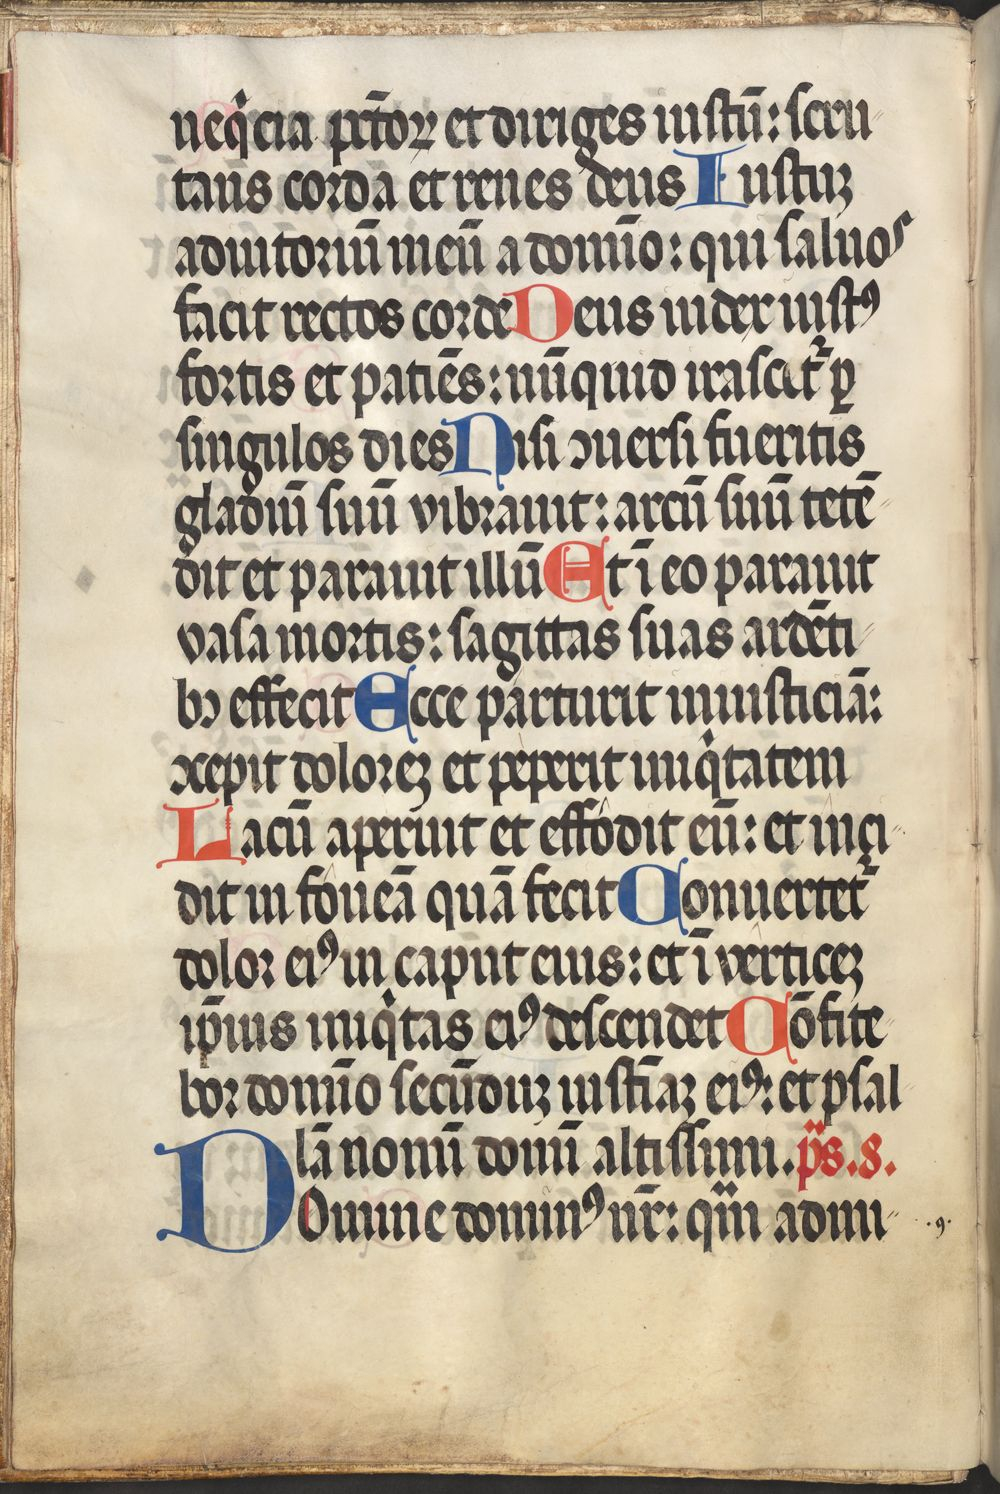 neq̾cia pctoꝝ et diriges iustū: scru
tans corda et renes deus Iustuꝫ
adiutoriū meū a domino: qui saluos
facit rectos corde Deus iudex iustꝰ
fortis et patiēs: nūquid irascit᷑ ꝑ
singulos dies Nisi ꝯuersi fueritis
gladiū suū vibrauit: arcū suū tetē
dit et parauit illū Et ī eo parauit
vasa mortis: sagittas suas ardēti
bꝫ effecit Ecce parturit iniusticiā:
ꝯcepit doloreꝫ et peperit iniq̾tatem
Lacū aperuit et effodit eū: et inci
dit in foueā quā fecit Conuertet᷑
dolor eiꝰ in caput eius: et ī verticeꝫ
ip̄ius iniq̾tas eiꝰ descendet Cōfite
bor domīo secūduꝫ iustīaꝫ eiꝰ: et psal
lā nomī domī altissimi. ps. 8.
Domine dominꝰ nr̄: qm̄ admi
.9.